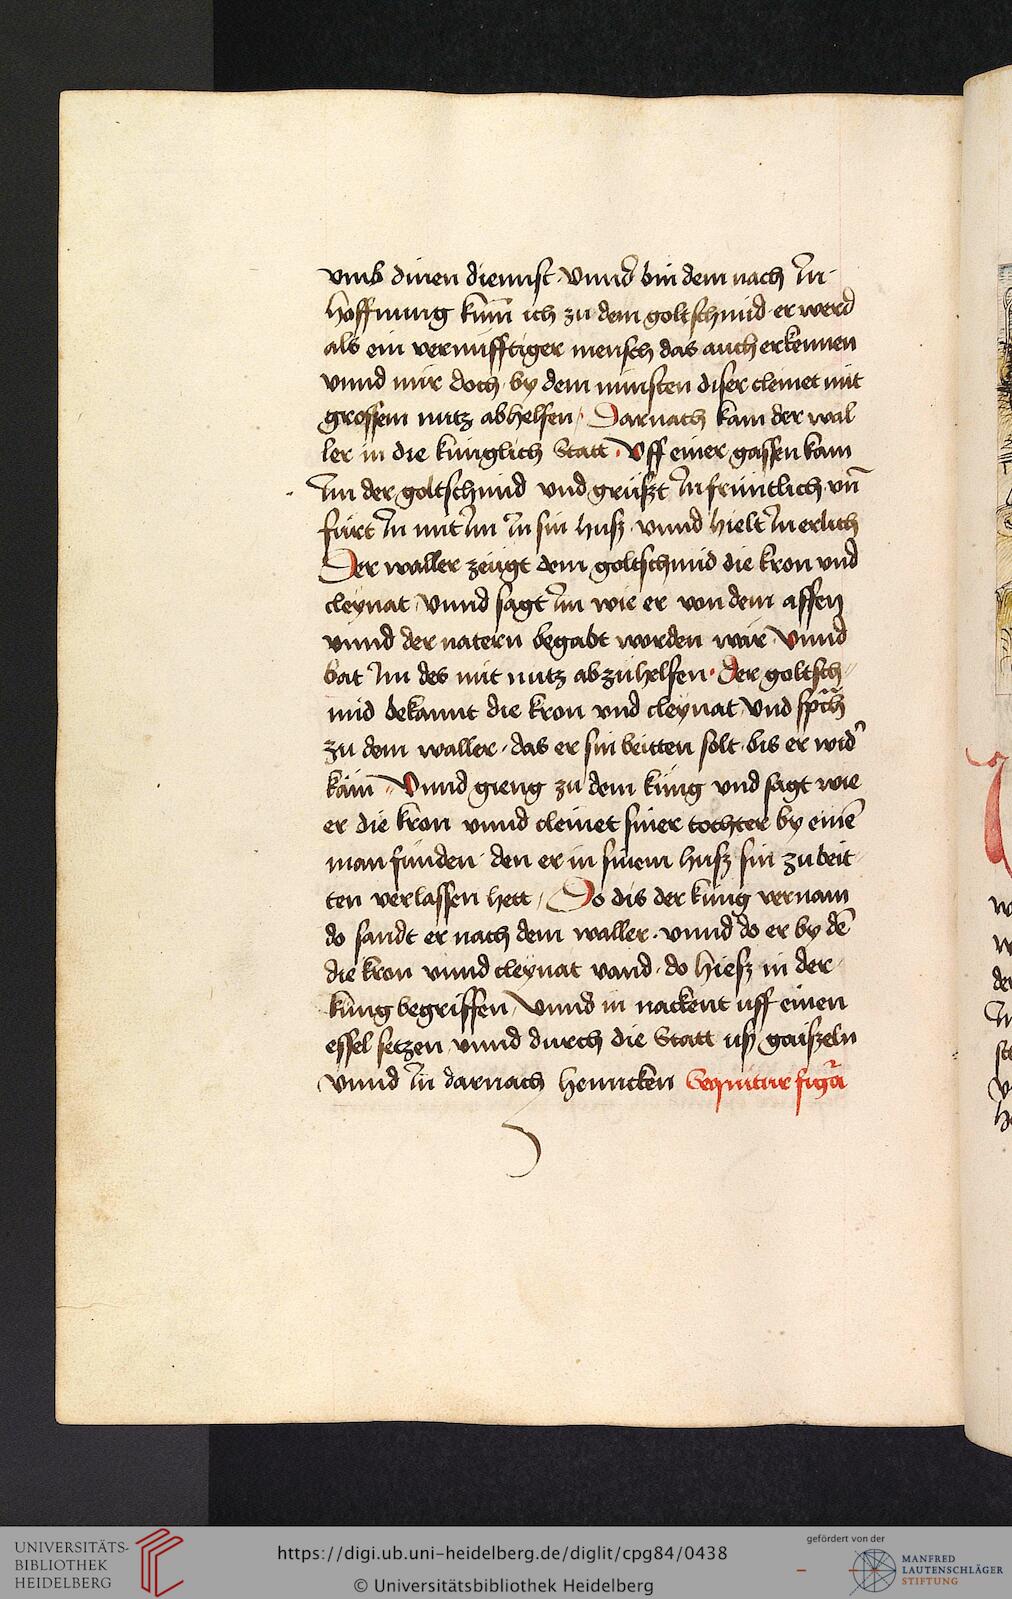 vmb dinen diennst · Vnnd bin dem nach In
hoffnung kum̄ ich zu dem goltschmid er werd
als ein vernufftiger mensch das auch erkennen
vnnd mir doch by dem minsten diser cleinet mit
grossem nutz abhelfen / Darnach kam der wal
ler in die kúnglich Statt · Vff einer gassen kam
Im der goltschmid vnd grüszt In früntlich vn̄
fürt In mit Im In sin husz · vnnd hielt In erlich
Der waller zeügt dem goltschmid die kron vnd
cleynat / Vnnd sagt Im wie er von dem affen
vnnd der natern begabt worden wär · Vnnd
bat Im des mit nutz abzúhelfen · Der goltsch⸗
mid bekannt die kron vnd cleynat / Vnd sprch
zu dem waller · das er sin beitten solt · bis er wid'
käm̄ · Vnnd gieng zu dem kúng vnd sagt wie
er die kron vnnd cleinet siner tochter by einē
man funden · den er in sinem husz sin zu beit
ten verlassen hett / Do dis der kúng vernam
do sandt er nach dem waller · vnnd do er by dē
die kron vnnd cleynat vand · do hiesz in der
kúng begriffen / Vnnd in nackent uff einen
essel setzen / vnnd durch die Statt usz gaiszeln
Vnnd In darnach henncken Sequitur figura
UNIVERSITÄTS-
BIBLIOTHEK
HEIDELBERG
https://digi.ub.uni-heidelberg.de/diglit/cpg84/0438
© Universitätsbibliothek Heidelberg
gefördert von der
MANFRED
LAUTENSCHLÄGER
STIFTUNG